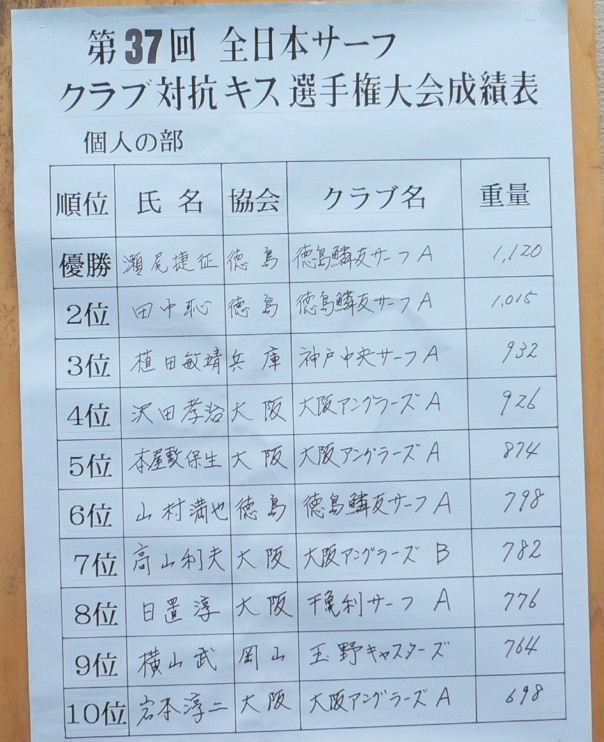 第37回 全日本サーフ
クラブ対抗キス選手権大会成績表
個人の部
順位 氏名 協会 クラブ名 重量
優勝 瀬尾捷征 徳島 徳島鱗友サーフA 1,120
2位 田中恥 徳島 徳島鱗友サーフA 1,015
3位 植田敏靖 兵庫 神戸中央サーフA 932
4位 沢田孝裕 大阪 大阪アングラーズA 926
5位 本屋敷保生 大阪 大阪アングラーズA 874
6位 山村満也 徳島 徳島鱗友サーフA 798
7位 高山利夫 大阪 大阪アングラーズB 782
8位 日置淳 大阪 千亀利サーフA 776
9位 横山武 岡山 玉野キャスターズ 764
10位 岩本淳二 大阪 大阪アングラーズA 698